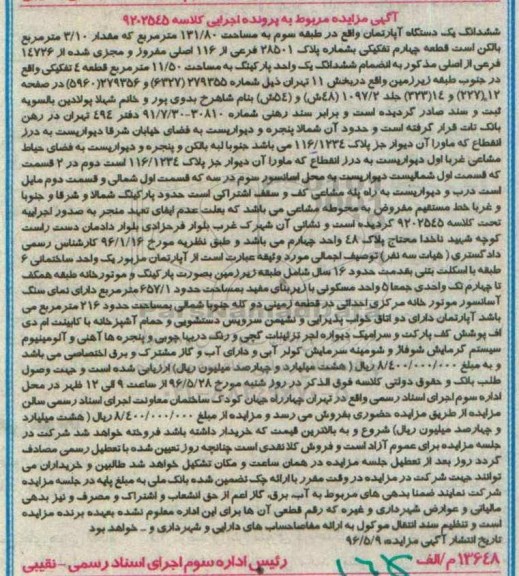 آگهی مزایده مربوط به پرونده اجرایی کلاسه ۹۲۰۲۵۴۵
ششدانگ یک دستگاه آپارتمان واقع در طبقه سوم به مساحت ۱۳۱/۸۰ مترمربع که مقدار ۳/۱۰ مترمربع
بالکن است قطعه چهارم تفکیکی بشماره پلاک ۲۸۵۰۱ فرعی از ۱۱۶ اصلی مفروز و مجزی شده از ۱۴۷۲۶
فرعی از اصلی مذکور به انضمام ششدانگ یک واحد پارکینگ به مساحت ۱۱/۵۰ مترمربع قطعه ۴ تفکیکی واقع
در جنوب طبقه زیرزمین واقع دربخش ۱۱ تهران ذیل شماره ۲۷۹۳۵۵ (۶۳۲۷) و ۲۷۹۳۵۶ (۵۹۶۰) در صفحه
۱۲ (۲۲۷) و ۱۴ (۳۳۳) جلد ۱۰۹۷/۲ (۴۸ش) و (۵۴ش) بنام شاهرخ بدوی پور و خانم شیلا پولادین بالسویه
ثبت و سند صادر گردیده است و برابر سند رهنی شماره ۳۰۸۱۰-۹۱/۷/۳۰ دفتر ۴۹۴ تهران در رهن
بانک تات قرار گرفته است و حدود آن شمالا پنجره و دیواریست به فضای خیابان شرقا دیواریست به درز
انقطاع که ماورا آن دیوار جز پلاک ۱۱۶/۱۲۳۴ می باشد جنوبا لبه بالکن و پنجره و دیواریست به فضای حیاط
مشاعی غربا اول دیواریست به درز انقطاع که ماورا آن دیوار جز پلاک ۱۱۶/۱۲۳۴ است دوم در ۲ قسمت
که قسمت اول شمالیست دیواریست به محل آسانسور سوم در سه که قسمت اول شمالی و قسمت دوم مایل
است درب و دیواریست به راه پله مشاعی کف و سقف اشتراکی است حدود پارکینگ شمالا و شرقا و جنوبا
و غربا خط مستقیم مفروض به محوطه مشاعی می باشد که بعلت عدم ایفای تعهد منجر به صدور اجراییه
تحت کلاسه ۹۲۰۲۵۴۵ گردیده است و نشانی آن شهرک غرب بلوار فرحزادی بلوار دادمان دست راست
کوچه شهید ناخدا محتاج پلاک ۴۸ واحد چهارم می باشد و طبق نظریه مورخ ۹۶/۱/۱۶ کارشناس رسمی
دادگستری (هیات سه نفر) توصیف اجمالی مورد وثیقه عبارت است از آپارتمان مزبور یک واحد ساختمانی ۶
طبقه با اسکلت بتنی بقدمت حدود ۱۶ سال شامل طبقه زیرزمین بصورت پارکینگ و موتورخانه طبقه همکف
تا چهارم تک واحدی جمعا ۵ واحد مسکونی با زیربنای مفید بمساحت حدود ۶۵۷/۱ مترمربع دارای نمای سنگ
آسانسور موتور خانه مرکزی احداثی در قطعه زمینی دو کله جنوبا شمالی بمساحت حدود ۲۱۶ مترمربع می
باشد آپارتمان دارای دو اتاق خواب پذیرایی و نشیمن سرویس دستشویی و حمام آشپزخانه با کابینت ام دی
اف پوشش کف پارکت و سرامیک دیواره اجر تزئینات گچی و رنگ دربها چوبی و پنجره ها آهنی و آلومینیوم
سیستم گرمایش شوفاژ و شومینه سرمایش کولر آبی و دارای آب و گاز مشترک و برق اختصاصی می باشد
و به مبلغ ۸/۴۰۰/۰۰۰/۰۰۰ ریال (هشت میلیارد و چهارصد میلیون ریال) ارزیابی شده است و جهت وصول
طلب بانک و حقوق دولتی کلاسه فوق الذکر در روز شنبه مورخ ۹۶/۵/۲۸ از ساعت ۹ الی ۱۲ ظهر در محل
اداره سوم اجرای اسناد رسمی واقع در تهران چهارراه جهان کودک ساختمان معاونت اجرای اسناد رسمی سالن
مزایده از طریق مزایده حضوری بفروش می رسد و مزایده از مبلغ ۸/۴۰۰/۰۰۰/۰۰۰ ریال (هشت میلیارد
و چهارصد میلیون ریال) شروع و به بالاترین قیمت که خریدار داشته باشد فروخته خواهد شد شرکت در
جلسه مزایده برای عموم آزاد است و فروش کلا نقدی است چنانچه روز تعیین شده با تعطیل رسمی مصادف
گردد روز بعد از تعطیل جلسه مزایده در همان ساعت و مکان تشکیل خواهد شد طالبین و خریداران می
توانند جهت شرکت در مزایده در وقت مقرر با ارائه چک تضمین شده بانک ملی به مبلغ پایه در جلسه مزایده
شرکت نمایند ضمنا بدهی های مربوط به آب، برق، گاز اعم از حق انشعاب و اشتراک و مصرف و نیز بدهی
مالیاتی و عوارض شهرداری و غیره که رقم قطعی آن ها برای این اداره معلوم نشده بعهده برنده مزایده
است و تنظیم سند انتقال موکول به ارائه مفاصاحساب های دارایی و شهرداری و .. خواهد بود
تاریخ انتشار آگهی مزایده: ۹۶/۵/۹
۱۳۶۴۸م/الف رئیس اداره سوم اجرای اسناد رسمی - نقیبی